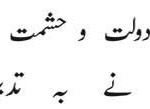 دولت و حشمت
نے بہ